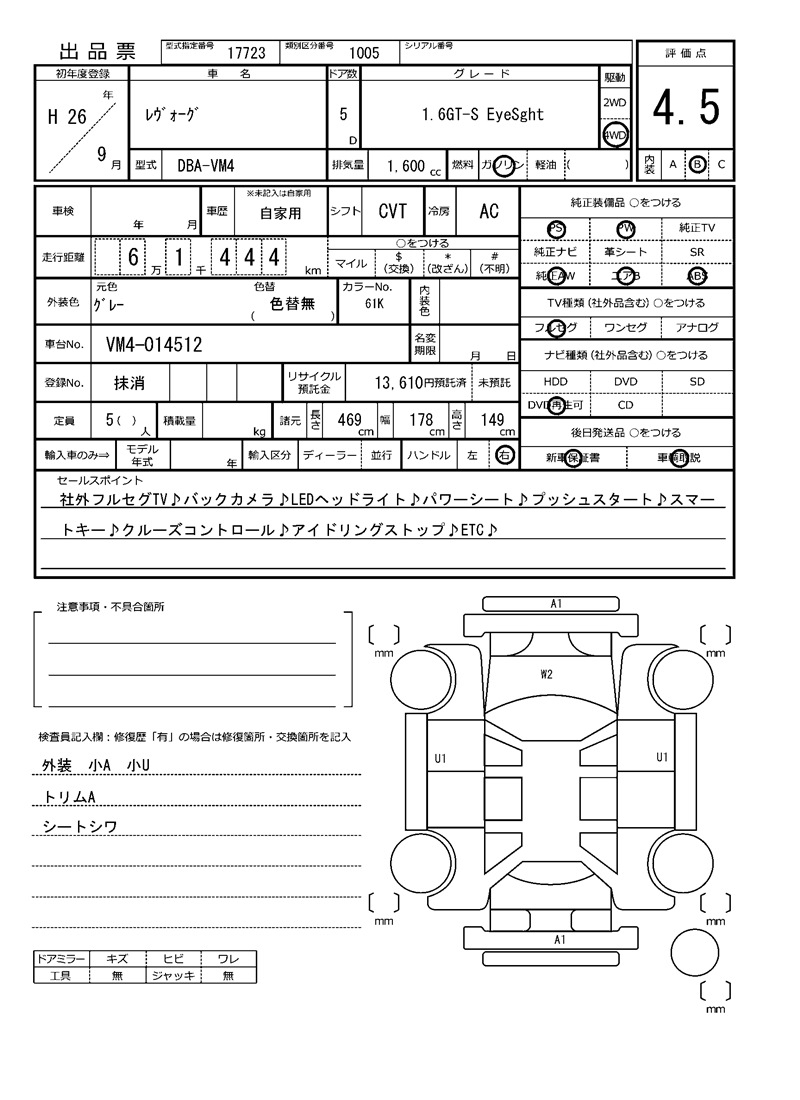 出品票 型式指定番号 17723 類別区分番号 1005 シリアル番号
評価点
4.5
内装 A B C
初年度登録 車名 ドア数 グレード 駆動
H 26 年 9 月 レヴォーグ 5 D 1.6GT-S EyeSght 2WD 4WD
型式 DBA-VM4 排気量 1,600 cc 燃料 ガソリン 軽油 ( )
車検 年 月 車歴 ※未記入は自家用 自家用 シフト CVT 冷房 AC
走行距離 6 万 1 千 4 4 4 km ○をつける
マイル $ (交換) * (改ざん) # (不明)
外装色 元色 グレー 色替 ( 色替無 ) カラーNo. 61K 内装色
車台No. VM4-014512 名変期限 月 日
登録No. 抹消 リサイクル預託金 13,610円預託済 未預託
定員 5 ( ) 人 積載量 kg 諸元 長さ 469 cm 幅 178 cm 高さ 149 cm
輸入車のみ⇒ モデル年式 年 輸入区分 ディーラー 並行 ハンドル 左 右
純正装備品 ○をつける
PS PW 純正TV
純正ナビ 革シート SR
純正AW エアB ABS
TV種類(社外品含む)○をつける
フルセグ ワンセグ アナログ
ナビ種類(社外品含む)○をつける
HDD DVD SD
DVD再生可 CD
後日発送品 ○をつける
新車保証書 車輌取説
セールスポイント
社外フルセグTV♪バックカメラ♪LEDヘッドライト♪パワーシート♪プッシュスタート♪スマー
トキー♪クルーズコントロール♪アイドリングストップ♪ETC♪
注意事項・不具合箇所
検査員記入欄：修復歴「有」の場合は修復箇所・交換箇所を記入
外装 小A 小U
トリムA
シートシワ
ドアミラー キズ ヒビ ワレ
工具 無 ジャッキ 無
A1
mm mm
W2
U1 U1
mm mm
A1
mm